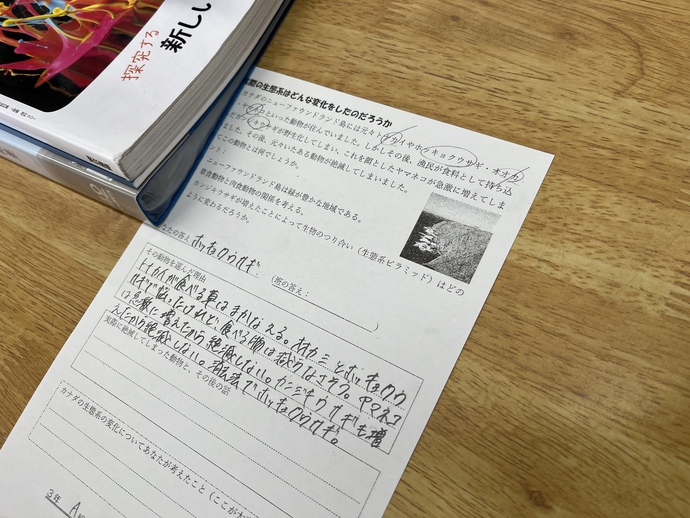 探究する
新しい
の生態系はどんな変化をしたのだろうか
カナダのニューファウンドランド島には元々トナカイやホッキョクウサギ・オオカ
といった動物が住んでいました。しかしその後、漁民が食料として持ち込
ギが野生化してしまい、それを餌としたヤマネコが急激に増えてしま
ました。その後、元々いたある動物が絶滅してしまいました。
てこの動物とは何でしょうか。
ント：
ニューファウンドランド島は緑が豊かな地域である。
草食動物と肉食動物の関係を考える。
カンジキウサギが増えたことによって生物のつり合い（生態系ピラミッド）はどの
ように変わるだろうか。
なたの答え ホッキョクウサギ： （班の答え： ）
その動物を選んだ理由
トナカイが食べる草はまかなえる。オオカミとホッキョクウ
サギで悩んだけれど、食べる物は減らなさそう。ヤマネコ
は急激に増えたから絶滅しない。カンジキウサギも増
えたから絶滅しない。消去法でホッキョクウサギ。
実際に絶滅してしまった動物と、その後の話
カナダの生態系の変化についてあなたが考えたこと（ここが大
3年 A